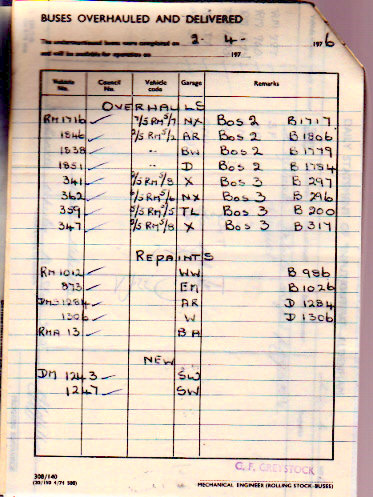 BUSES OVERHAULED AND DELIVERED
The undermentioned buses were completed on 2-4- 1976
and will be available for operation on 197
Vehicle No. Council No. Vehicle code Garage Remarks
OVERHAULS
RM1716 ✓ 7/5 RM 5/7 NX Bos 2 B1717
1846 ✓ 2/5 RM 5/2 AR Bos 2 B1806
1838 ✓ " BW Bos 2 B1779
1851 ✓ " D Bos 2 B1754
341 ✓ X Bos 3 B297
362 ✓ NX Bos 3 B296
359 ✓ TL Bos 3 B200
347 ✓ X Bos 3 B317
REPAINTS
RM1012 ✓ WW B986
873 ✓ EM B1026
DMS1284 ✓ AR D1284
1306 ✓ W D1306
RMA 13 ✓ BA
NEW
DM 1243 ✓ SW
1247 ✓ SW
G. F. GREYSTOCK
308/140
MECHANICAL ENGINEER (ROLLING STOCK-BUSES)